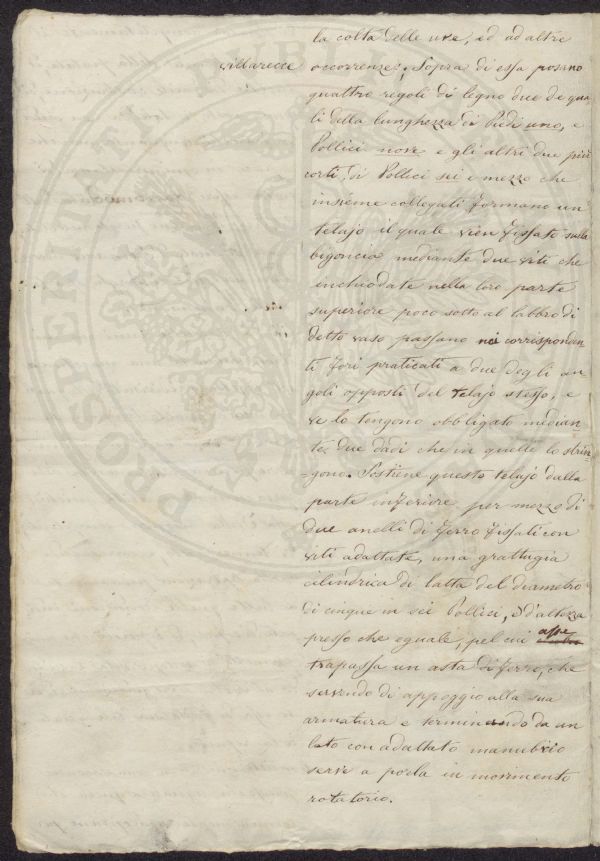 la colta delle uve, ed ad altre
villarecce occorrenze; Sopra di essa posano
quattro regoli di legno due de qua
li della lunghezza di Piedi uno, e
Pollici nove e gli altri due più
corti, di Pollici sei e mezzo che
insieme collegati formano un
telajo il quale vien fissato sulla
bigoncia mediante due viti che
inchiodate nella loro parte
superiore poco sotto al labbro di
detto vaso passano nei corrisponden
ti fori praticati a due degli an
goli opposti del telajo stesso, e
ve lo tengono obbligato median
te due dadi che in quelle lo strin
=gono. Sostiene questo telajo dalla
parte inferiore per mezzo di
due anelli di ferro fissati con
viti adattate, una grattugia
cilindrica di latta del diametro
di cinque in sei Pollici, e d'altezza
presso che eguale, pel cui asse
trapassa un asta di ferro, che
servendo di appoggio alla sua
armatura e terminando da un
lato con adattato manubrio
serve a porla in movimento
rotatorio.